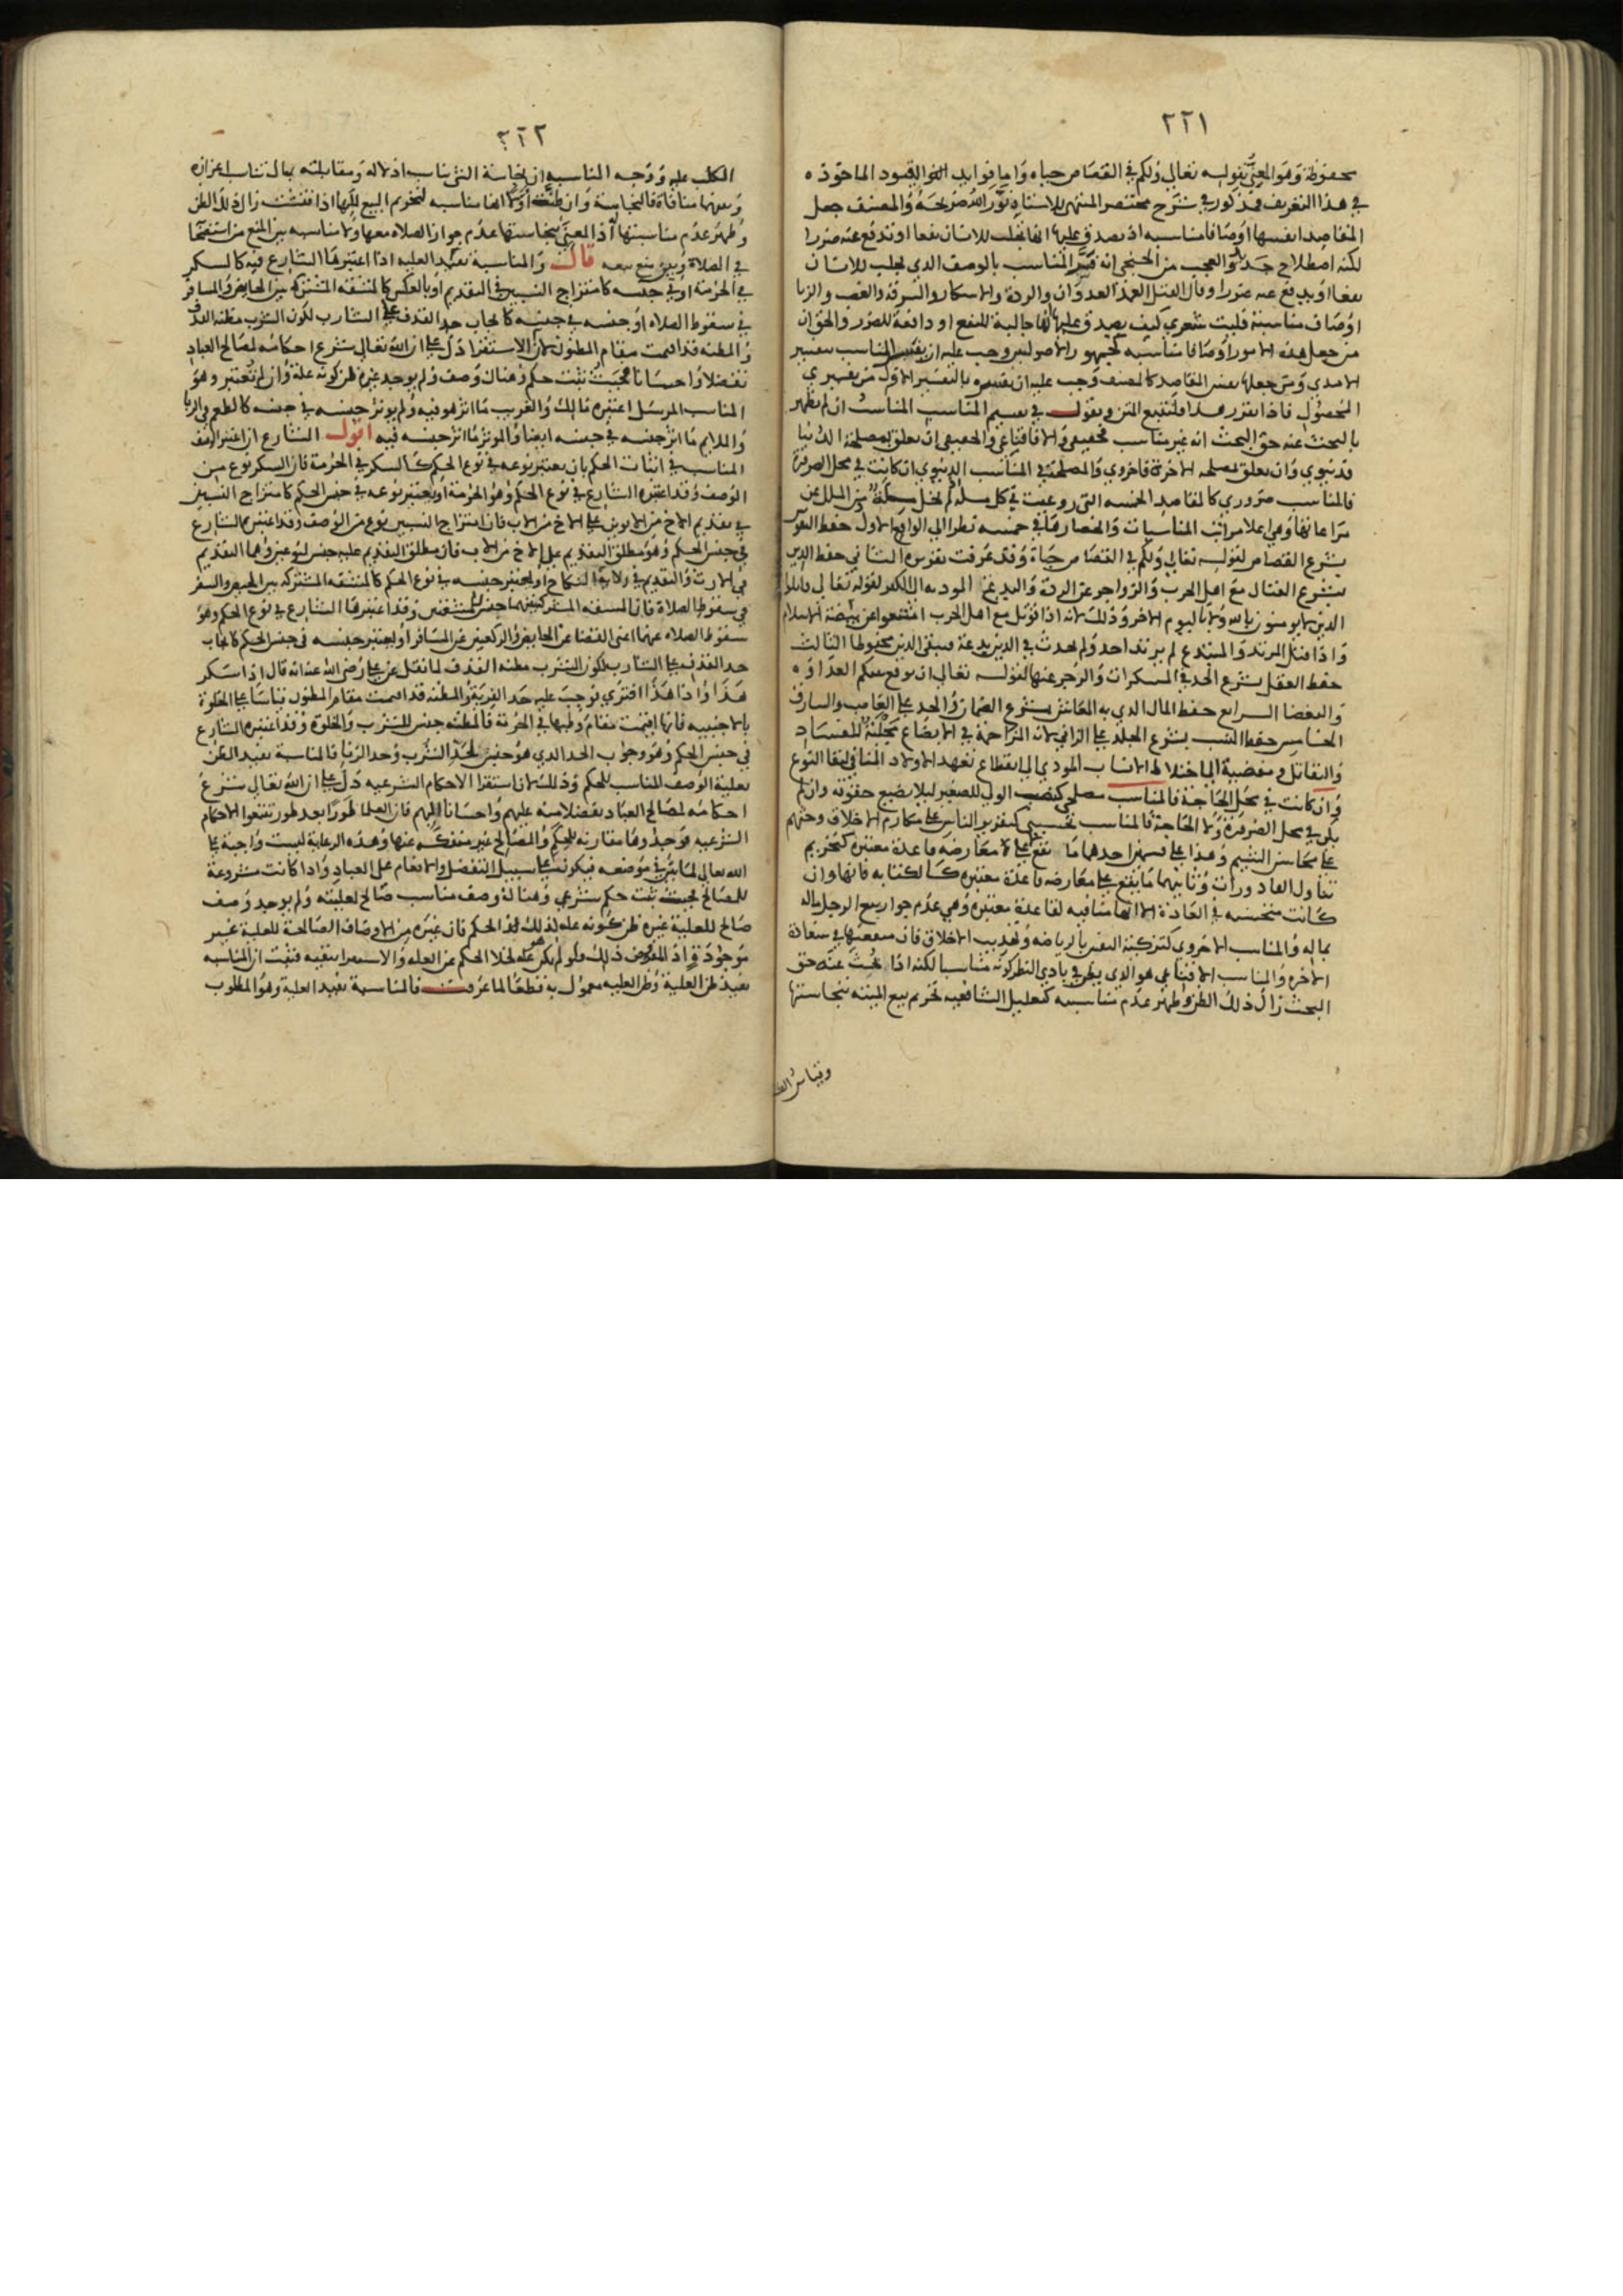 ٢٢١
محفوظة وهو المعني بقوله تعالى ولكم في القصاص حياه واما فوايد
في هذا التعريف فمذكور في شرح مختصر المنتهى للاستاذ نور الله ضريحه والمصنف جعل
المقاصد انفسها اوصافا مناسبه اذ يصدق عليها انها تجلب للانسان نفعا او تدفع عنه ضررا
لكنه اصطلاح جديد والعجب من الخنجي انه فسر المناسب بالوصف الذي يجلب للانسان
نفعا او يدفع عنه ضررا وقال القتل العمد العدوان والردة والاسكار والسرقه والغصب والزنا
اوصاف مناسبة فليت شعري كيف يصدق عليها انها جالبة للنفع او دافعة للضرر والحق ان
من جعل هذه الامور اوصافا مناسبه كجمهور الاصوليين وجب عليه ان يفسر المناسب بتفسير
الامدي ومن جعلها بعض المقاصد كالمصنف وجب عليه ان يفسره بالتفسير الاول من تفسيري
المحصول فاذا تقرر هذا فلنتبع المتن ونقول في تقسيم المناسب المناسب ان لم يظهر
بالبحث عنه حق البحث انه غير مناسب فحقيقي والا فاقناعي والحقيقي ان تعلق بمصلحة الدنيا
فدنيوي وان تعلق بمصلحه الاخرة فاخروي والمصلحة في المناسب الدنيوي ان كانت في محل الضرورة
فالمناسب ضروري كالمقاصد الخمسه التي روعيت في كل ملة لم تخل من الملل عن
مراعاتها وهي اعلا مراتب المناسبات وانحصارها في خمسه نظرا الى الواقع الاول حفظ النفوس
بشرع القصاص لقوله تعالى ولكم في القصاص حياة وقد عرفت تقريره الثاني حفظ الدين
بشرع القتال مع اهل الحرب والزواجر عن الردة والبدع المودية الى الكفر لقوله تعالى قاتلوا
الذين لا يومنون بالله ولا باليوم الاخر وذلك لانه اذا قوتل مع اهل الحرب امتنعوا عن بيضة الاسلام
واذا قتل المرتد والمبتدع لم يرتد احد ولم يحدث في الدين بدعة فيبقى الدين محفوظا الثالث
حفظ العقل بشرع الحد في المسكرات والزجر عنها لقوله تعالى ان يوقع بينكم العداوه
والبغضا الرابع حفظ المال الذي به المعاش بشرع الضمان والحد على الغاصب والسارق
الخامس حفظ النسب بشرع الجلد على الزاني لان المزاحمة في الابضاع مجلبة للفساد
والتقاتل ومفضية الى اختلاط الانساب المودي الى انقطاع تعهد الاولاد المنافي لبقا النوع
وان كانت في محل الحاجة فالمناسب مصلحي كنصب الولي للصغير ليلا يضيع حقوقه وان لم
يكن في محل الضرورة ولا الحاجة فالمناسب تحسيني كتقرير الناس على مكارم الاخلاق وحثهم
على محاسن الشيم وهذا على قسمين احدهما ما يقع على لا معارضة قاعدة معتبرة كتحريم
تناول القاذورات وثانيهما ما يقع على معارضه قاعدة معتبرة كالكتابه فانها وان
كانت مستحسنه في العادة الا انها منافيه لقاعدة معتبرة وهي عدم جواز بيع الرجل ماله
بماله والمناسب الاخروي كتزكية النفس بالرياضه وتهذيب الاخلاق فان منفعتها في سعادة
الاخرة والمناسب الاقناعي هو الذي يظن في بادي النظر كونه مناسبا لكنه اذا بحث عنه حق
البحث زال ذلك الظن وظهر عدم مناسبه كتعليل الشافعيه تحريم بيع الميته بنجاستها
وقياس
٢٢٢
الكلب عليه ووجه المناسبه ان نجاسة الشي تناسب اذلاله ومقابلته بمال تناسب اعزازه
وبينهما منافاة فالنجاسة وان ظنت اولا انها مناسبه لتحريم البيع لكنها اذا فتشت زال ذلك الظن
وظهر عدم مناسبتها اذ المعني بنجاستها عدم جواز الصلاه معها ولا مناسبه بين المنع من استصحابها
في الصلاة وبين منع بيعه قال والمناسبة تفيد العليه اذا اعتبرها الشارع فيه كالسكر
في الحرمة او في جنسه كامتزاج النسبين في التقديم او بالعكس كالمشقه المشتركه بين الحايض والمسافر
في سقوط الصلاه او جنسه في جنسه كايجاب حد القذف على الشارب لكون الشرب مظنة القذف
والمظنه قد اقيمت مقام المظنون لان الاستقرا دل على ان الله تعالى شرع احكامه لمصالح العباد
تفضلا واحسانا فحيث ثبت حكم وهناك وصف ولم يوجد غيره ظن كونه علة وان لم تعتبر وهو
المناسب المرسل اعتبره مالك والغريب ما اثر هو فيه ولم يوثر جنسه في جنسه كالطعم في الربا
والملايم ما اثر جنسه في جنسه ايضا والموثر ما اثر جنسه فيه اقول الشارع ان اعتبر
المناسب في اثبات الحكم بان يعتبر نوعه في نوع الحكم كالسكر في الحرمة فان السكر نوع من
الوصف وقد اعتبره الشارع في نوع الحكم وهو الحرمة او يعتبر نوعه في جنس الحكم كامتزاج النسبين
في تقديم الاخ من الابوين على الاخ من الاب فان امتزاج النسبين نوع من الوصف وقد اعتبره الشارع
في جنس الحكم وهو مطلق التقديم على الاخ من الاب فان مطلق التقديم عليه جنس لنوعين وهما التقديم
في الارث والتقديم في ولاية النكاح او يعتبر جنسه في نوع الحكم كالمشقه المشتركه بين الحيض والسفر
في سقوط الصلاة فان المشقه المشتركه بينهما جنس لمشقتين وقد اعتبرها الشارع في نوع الحكم وهو
سقوط الصلاه عنهما اعني القضا عن الحايض والركعتين عن المسافر او يعتبر جنسه في جنس الحكم كايجاب
حد القذف على الشارب لكون الشرب مظنه القذف لما نقل عن علي رضي الله عنه انه قال اذا سكر
هذا واذا هذا افترى فوجب عليه حد الفرية والمظنه قد اقيمت مقام المظنون قياسا على الخلوة
بالاجنبيه فانها اقيمت مقام وطيها في الحرمة فالمظنه جنس للشرب والخلوة وقد اعتبره الشارع
في جنس الحكم وهو وجوب الحد الذي هو جنس لحد الشرب وحد الزنا فالمناسبة تفيد الظن
بعلية الوصف المناسب للحكم وذلك لان استقرا الاحكام الشرعيه دل على ان الله تعالى شرع
احكامه لمصالح العباد تفضلا منه عليهم واحسانا اليهم فان العلما طورا بعد طور تتبعوا الاحكام
الشرعيه فوجدوها مقارنه للحكم والمصالح غير منفكه عنها وهذه الرعاية ليست واجبة على
الله تعالى لما بين في موضعه فيكون على سبيل التفضل والانعام على العباد واذا كانت مشروعة
للمصالح فحيث ثبت حكم شرعي وهناك وصف مناسب صالح لعليته ولم يوجد وصف
صالح للعلية غيره ظن كونه علة لذلك الحكم فان غيره من الاوصاف الصالحة للعلية غير
موجود اذ المفروض ذلك ولو لم يكن علة لخلا الحكم عن العله والاستقرا ينفيه فثبت ان المناسبه
تفيد ظن العلية وظن العليه معمول به قطعا لما عرفت فالمناسبة تفيد العلية وهو المطلوب